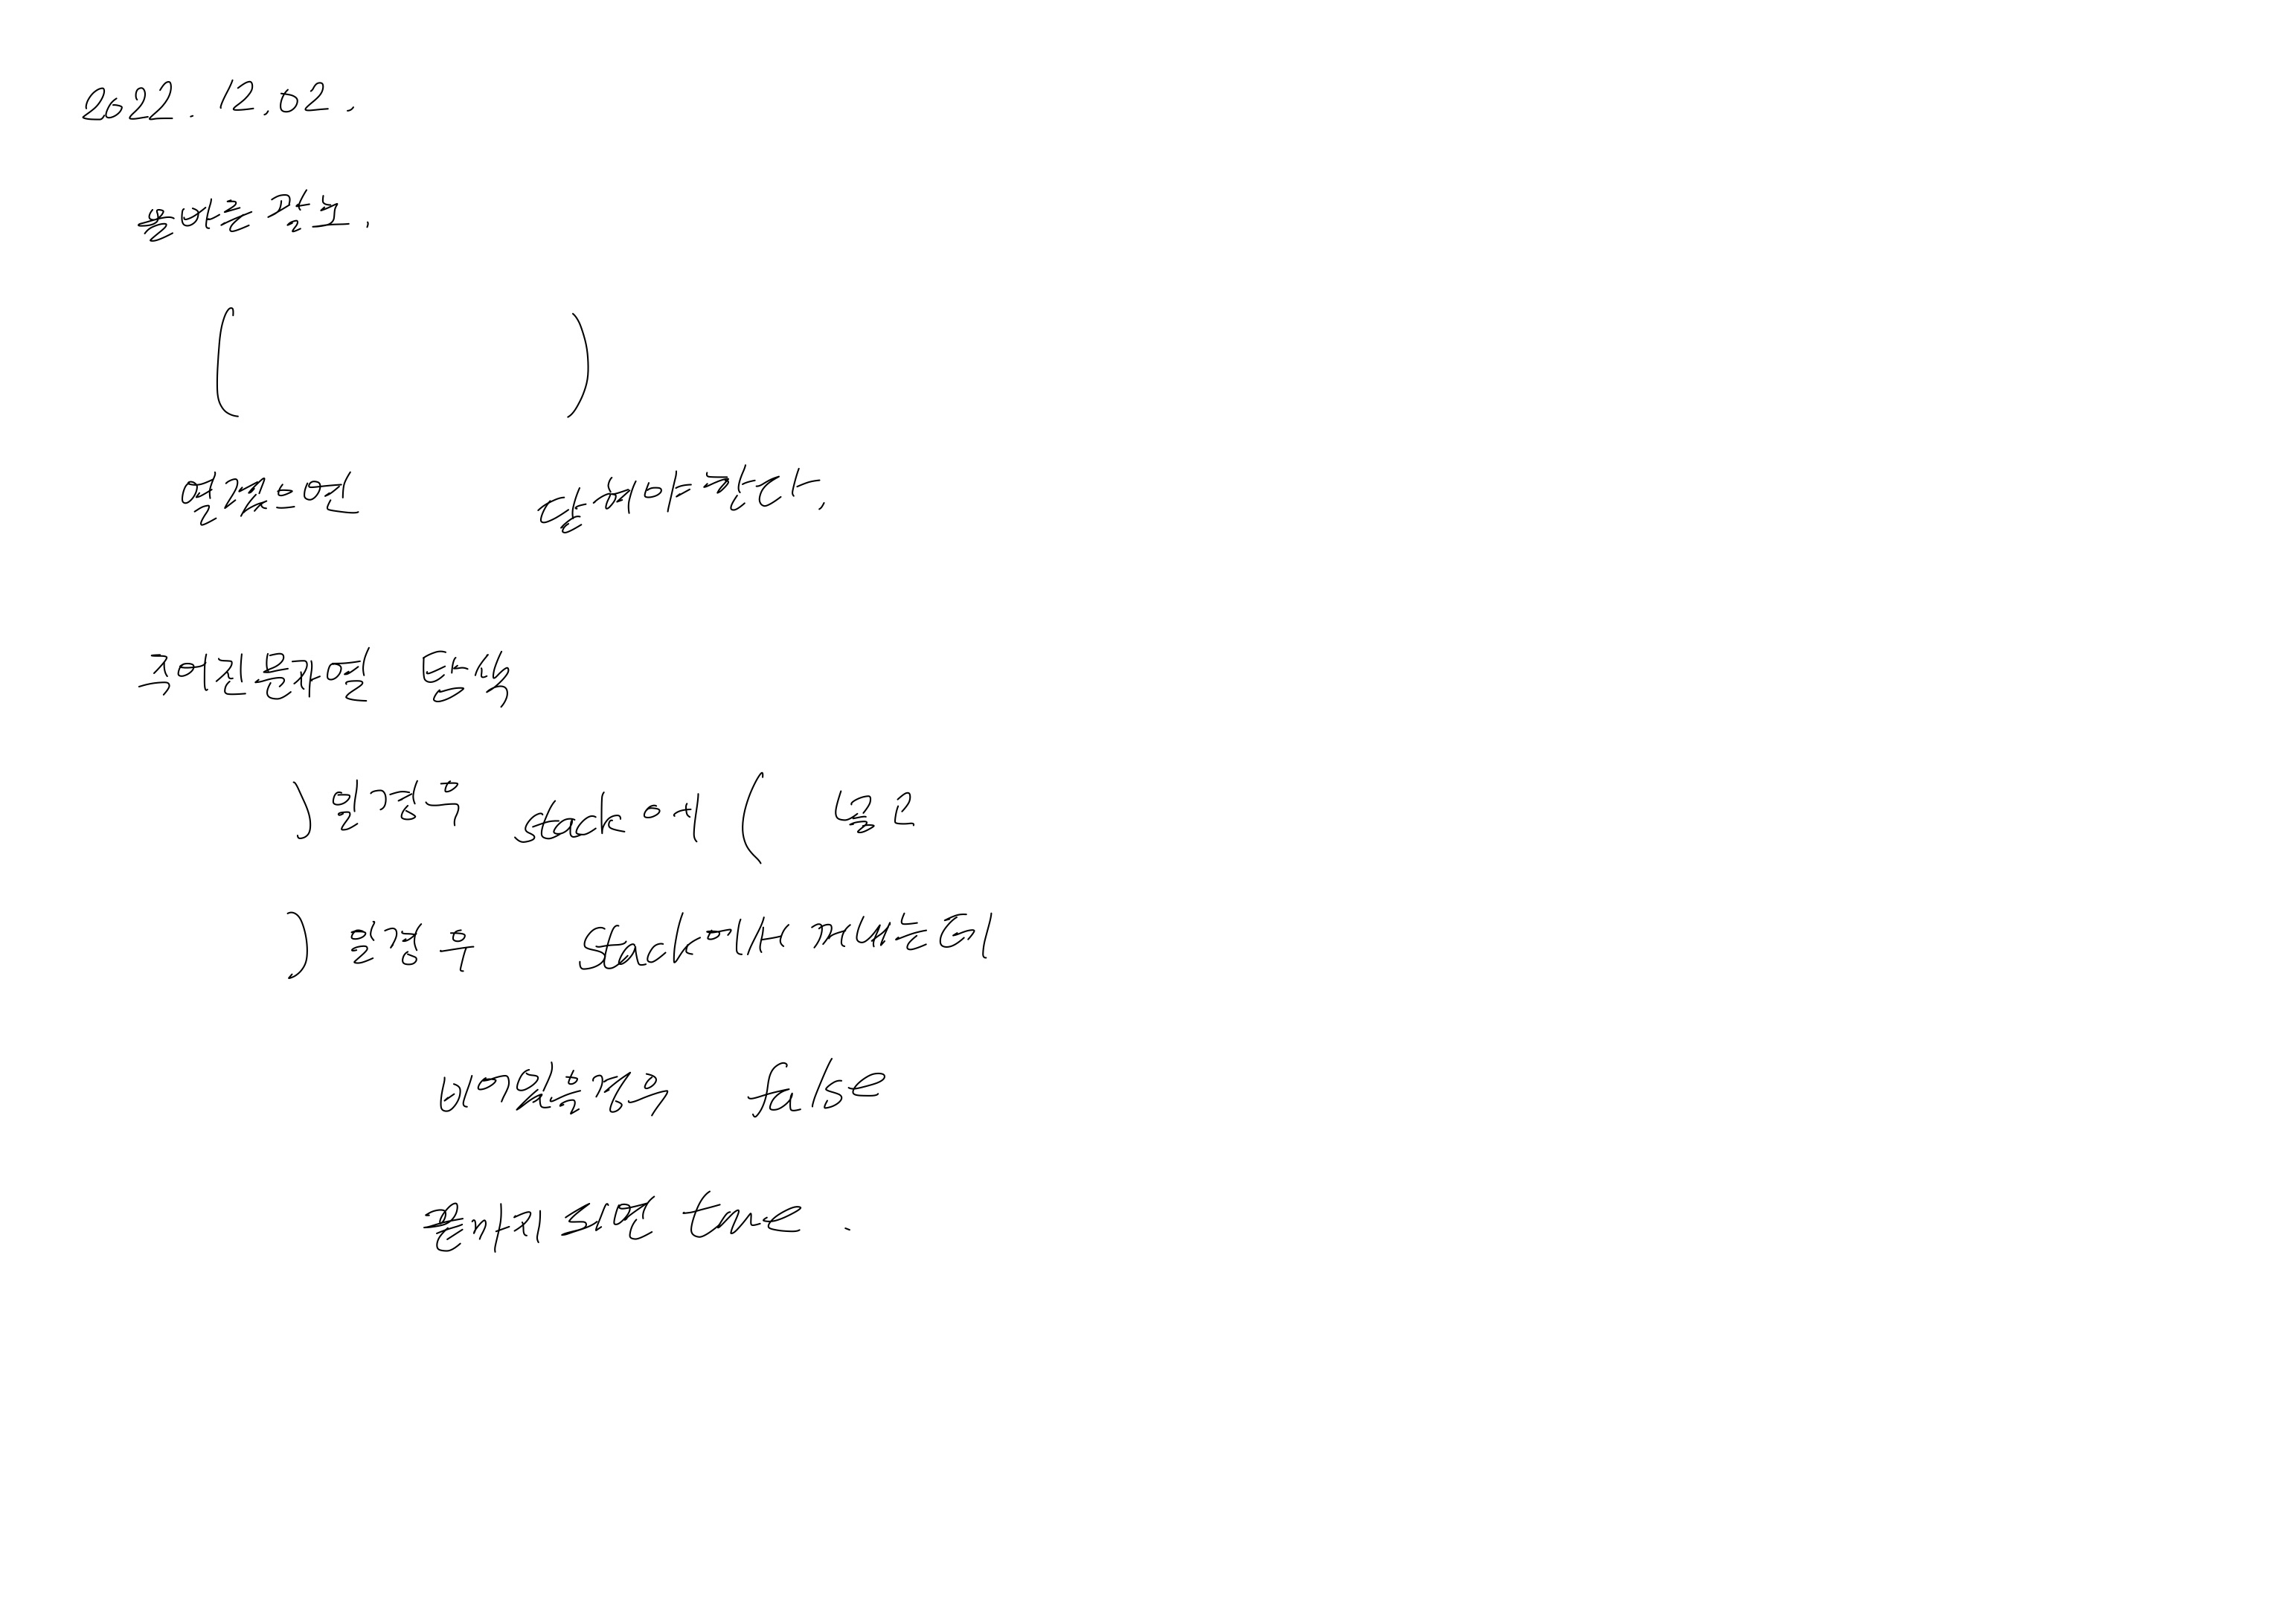 2022. 12. 02.
올바른 괄호.
( )
열렸으면 닫혀야 한다.
주어진 문자열 탐색
) 일 경우 stack에 ( 넣고
) 일 경우 Stack에서 꺼내는데
비어있을 경우 false
끝까지 되면 true.